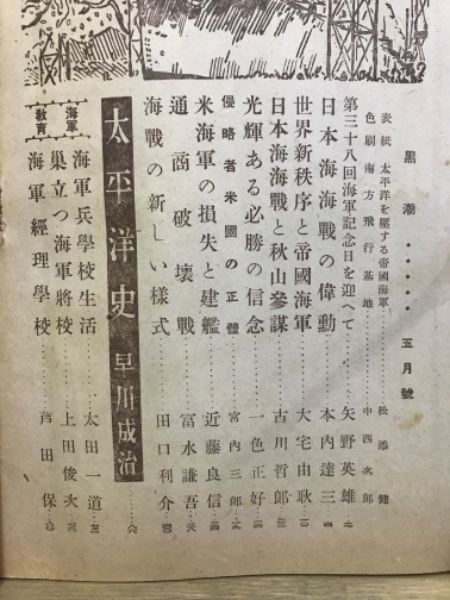 黒潮・・・・・・五月號
表紙 太平洋を壓する帝國海軍……松添健
色刷 南方飛行基地……中西次郎
第三十八回海軍記念日を迎へて……矢野英雄
日本海海戰の偉勳……本内達三
世界新秩序と帝國海軍……大宅由耿
日本海海戰と秋山參謀……古川哲郎
光輝ある必勝の信念……一色正好
侵略者米國の正體……宮内三郎
米海軍の損失と建艦……近藤良信
通商破壞戰……富水謙吾
海戰の新しい様式……田口利介
太平洋史 早川成治
海軍教育
海軍兵學校生活……太田一道
巣立つ海軍將校……上田俊次
海軍經理學校……芦田保